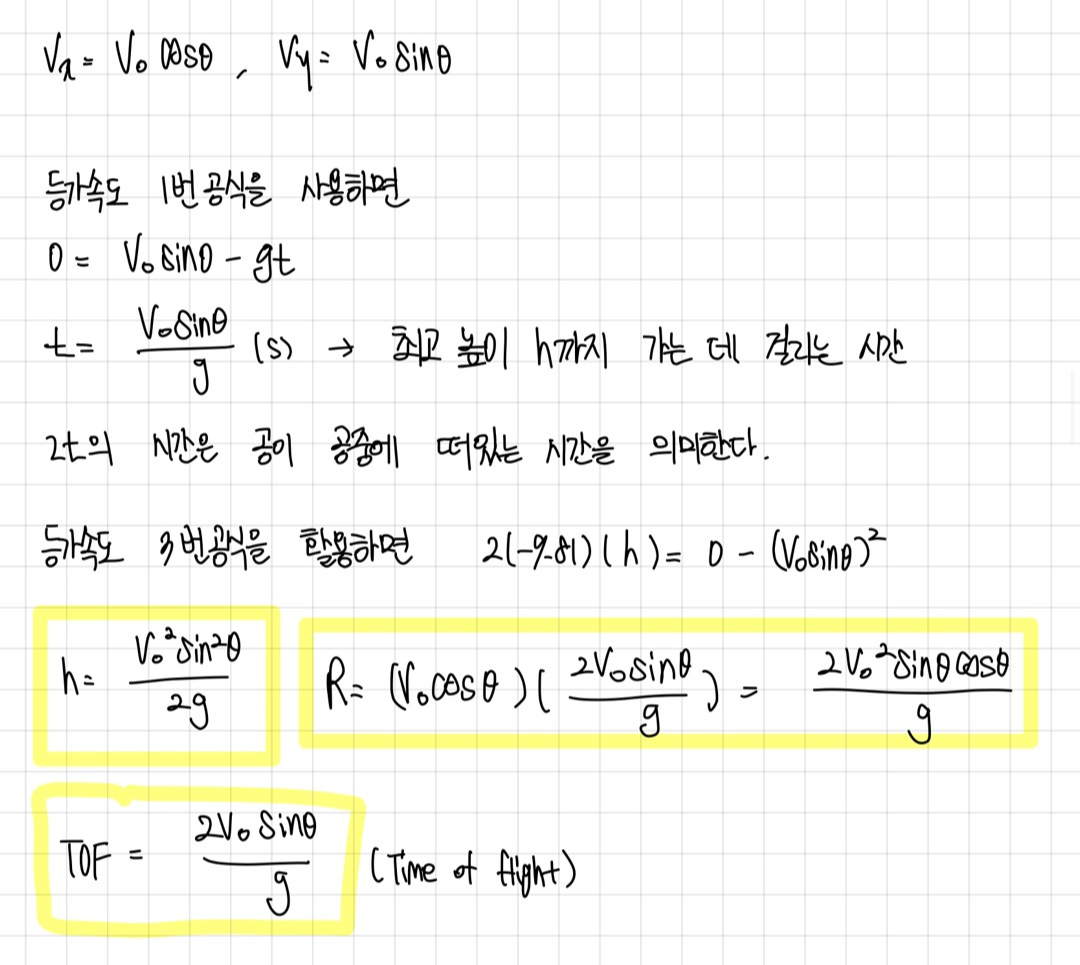 Vx = V₀ cosθ , Vy = V₀ sinθ
등가속도 1번 공식을 사용하면
0 = V₀ sinθ - gt
t = V₀sinθ/g (s) → 최고 높이 h까지 가는 데 걸리는 시간
2t의 시간은 공이 공중에 떠있는 시간을 의미한다.
등가속도 3번 공식을 활용하면 2(-9.81)(h) = 0 - (V₀sinθ)²
h = V₀²sin²θ/2g R = (V₀cosθ)(2V₀sinθ/g) = 2V₀²sinθcosθ/g
TOF = 2V₀ sinθ/g (Time of flight)